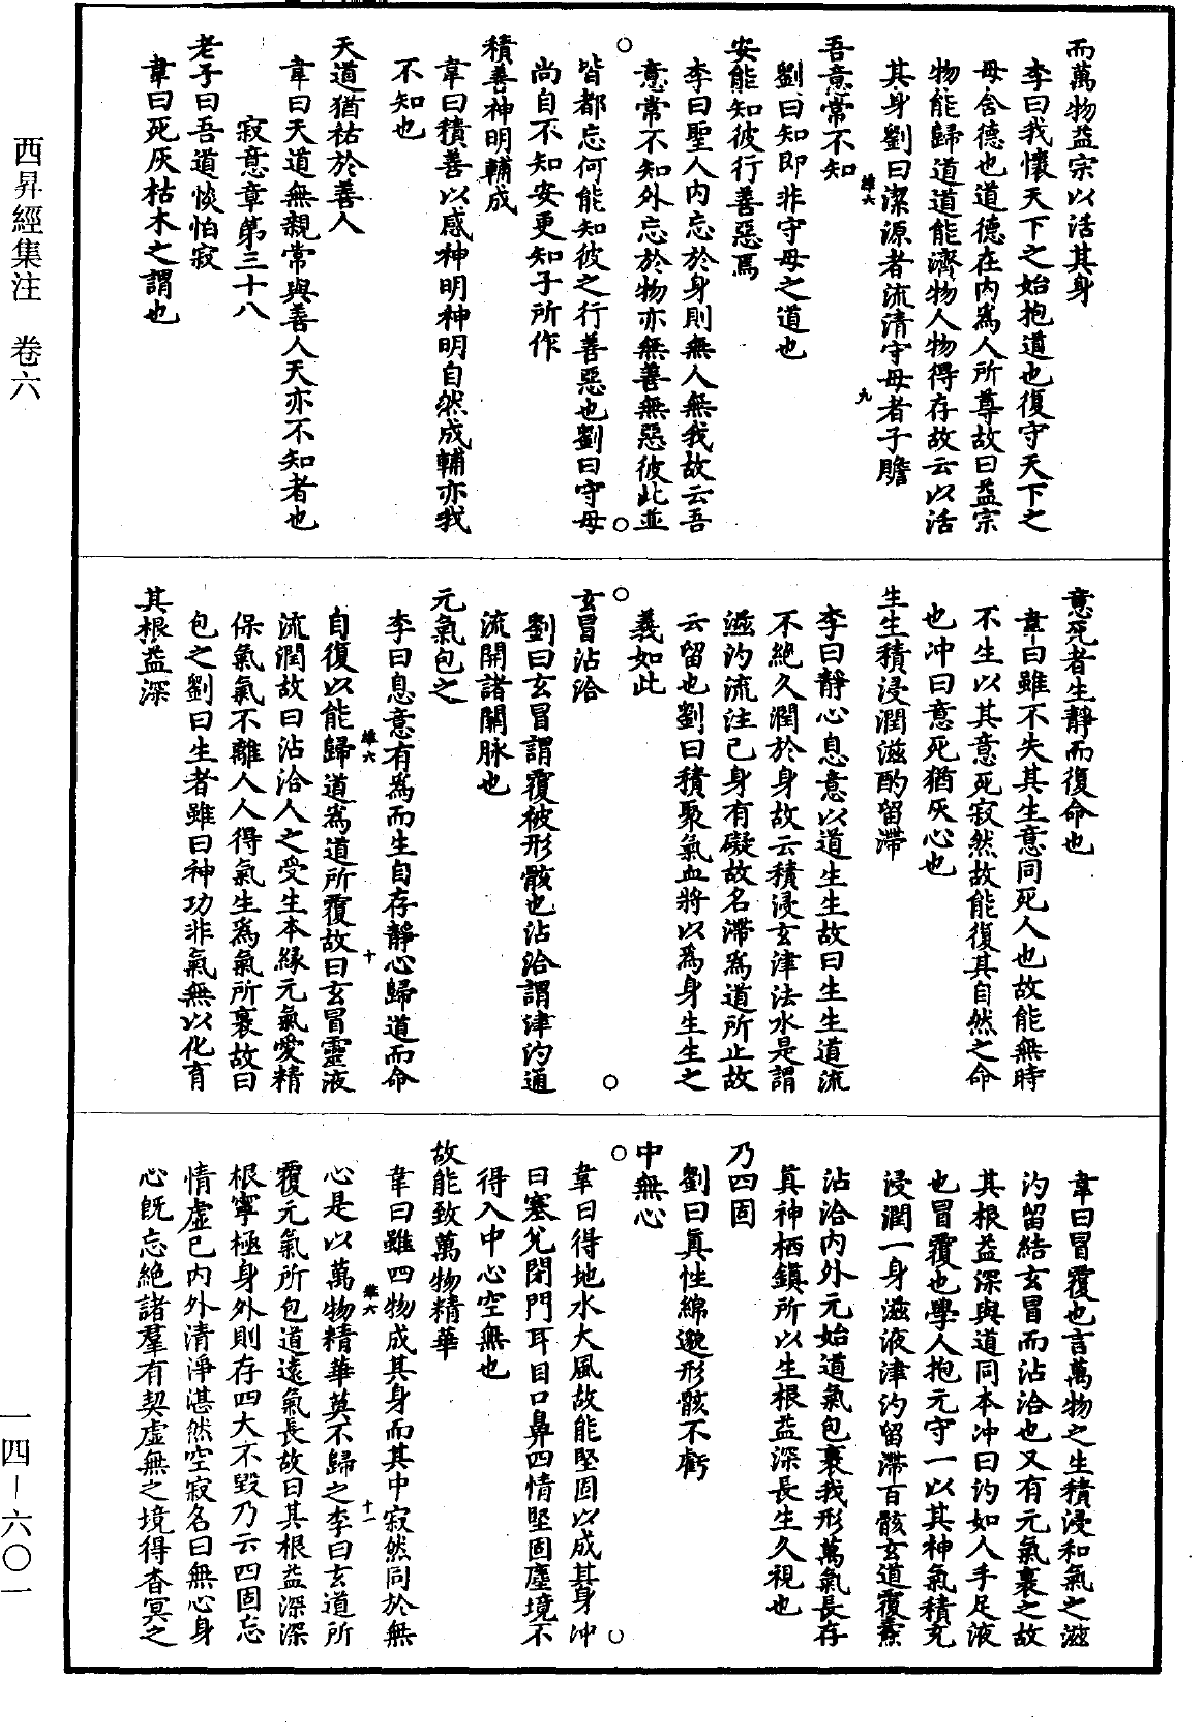 西昇經集注　卷六
而萬物益宗以活其身
李曰我懷天下之始抱道也復守天下之
母含德也道德在內爲人所尊故曰益宗
物能歸道道能濟物人物得存故云以活
其身劉曰潔源者流清守母者子贍
吾意常不知
劉曰知即非守母之道也
安能知彼行善惡焉
李曰聖人內忘於身則無人無我故云吾
意常不知外忘於物亦無善無惡彼此並
皆都忘何能知彼之行善惡也劉曰守母
尚自不知安更知子所作
積善神明輔成
韋曰積善以感神明神明自然成輔亦我
不知也
天道猶祐於善人
韋曰天道無親常與善人天亦不知者也
寂意章第三十八
老子曰吾道惔怕寂
韋曰死灰枯木之謂也
意死者生靜而復命也
韋曰雖不失其生意同死人也故能無時
不生以其意死寂然故能復其自然之命
也冲曰意死猶灰心也
生生積浸潤滋酌留滯
李曰靜心息意以道生生故曰生生道流
不絶久潤於身故云積浸玄津法水是謂
滋汋流注己身有礙故名滯爲道所止故
云留也劉曰積聚氣血將以爲身生生之
義如此
玄冒沾洽
劉曰玄冒謂覆被形骸也沾洽謂津汋通
流開諸關脉也
元氣包之
李曰息意有爲而生自存靜心歸道而命
自復以能歸道爲道所覆故曰玄冒靈液
流潤故曰沾洽人之受生本緣元氣愛精
保氣氣不離人人得氣生爲氣所裹故曰
包之劉曰生者雖曰神功非氣無以化育
其根益深
韋曰冒覆也言萬物之生積浸和氣之滋
汋留結玄冒而沾洽也又有元氣裹之故
其根益深與道同本冲曰汋如人手足液
也冒覆也學人抱元守一以其神氣積充
浸潤一身滋液津汋留滯百骸玄道覆燾
沾洽內外元始道氣包裹我形萬氣長存
眞神栖鎮所以生根益深長生久視也
乃四固
劉曰眞性綿邈形骸不虧
中無心
韋曰得地水火風故能堅固以成其身冲
曰塞兌閉門耳目口鼻四情堅固塵境不
得入中心空無也
故能致萬物精華
韋曰雖四物成其身而其中寂然同於無
心是以萬物精華莫不歸之李曰玄道所
覆元氣所包道遠氣長故曰其根益深深
根寧極身外則存四大不毀乃云四固忘
情虛己內外清淨湛然空寂名曰無心身
心旣忘絶諸羣有契虛無之境得杳冥之
雄六　九
雄六　十
雄六　十一
一四—六〇一